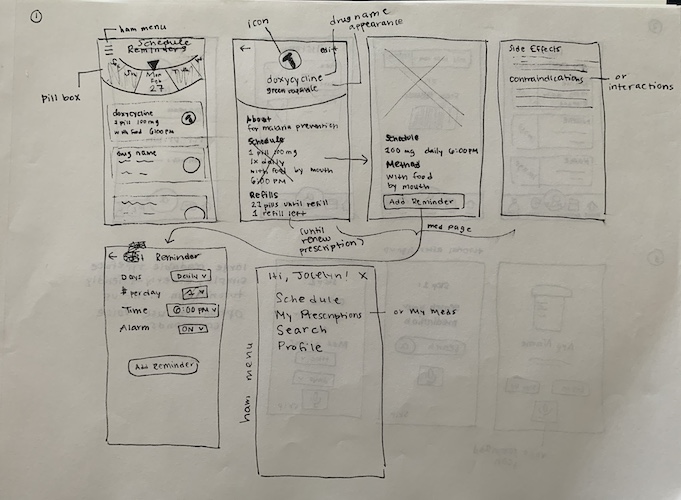 1
ham menu
Schedule
Reminders
Sun
Mon
Feb
27
pill box
doxycycline
1 pill 100mg
with food 6:00PM
drug name
icon
drug name
appearance
edit
doxycycline
green capsule
About
for malaria prevention
Schedule
1 pill 100mg
1x daily
with food by mouth
6:00 PM
Refills
27 pills until refill
1 refill left
(until
renew
prescription)
Schedule
100 mg daily 6:00PM
Method
with food
by mouth
Add Reminder
med page
Side Effects
Contraindications
or
interactions
Reminder
Days Daily
# per day 1
Time 6:00 PM
Alarm ON
Add Reminder
ham menu
Hi, Jocelin! X
Schedule
My Prescriptions
Search
Profile
or My Meds